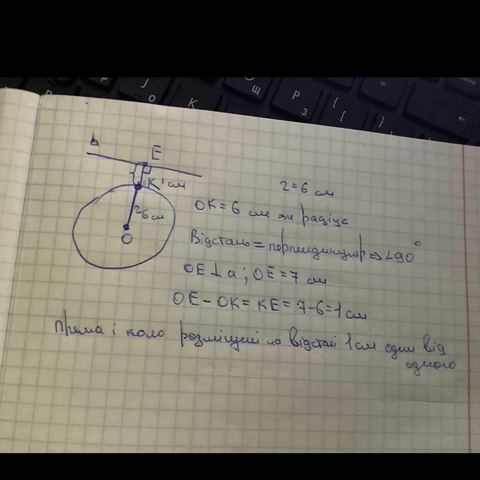 a
E
K 1 см
r 6 см
O
r = 6 см
OK = 6 см як радіус
Відстань = перпендикуляр => ∠90°
OE ⊥ a ; OE = 7 см
OE - OK = KE = 7-6 = 1 см
Пряма і коло розміщені на відстані 1 см один від
одного